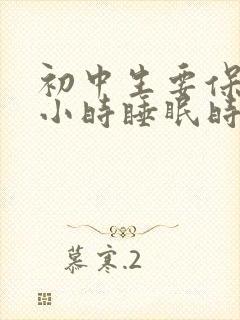 初中生要保
小时睡眠时
慕寒.2